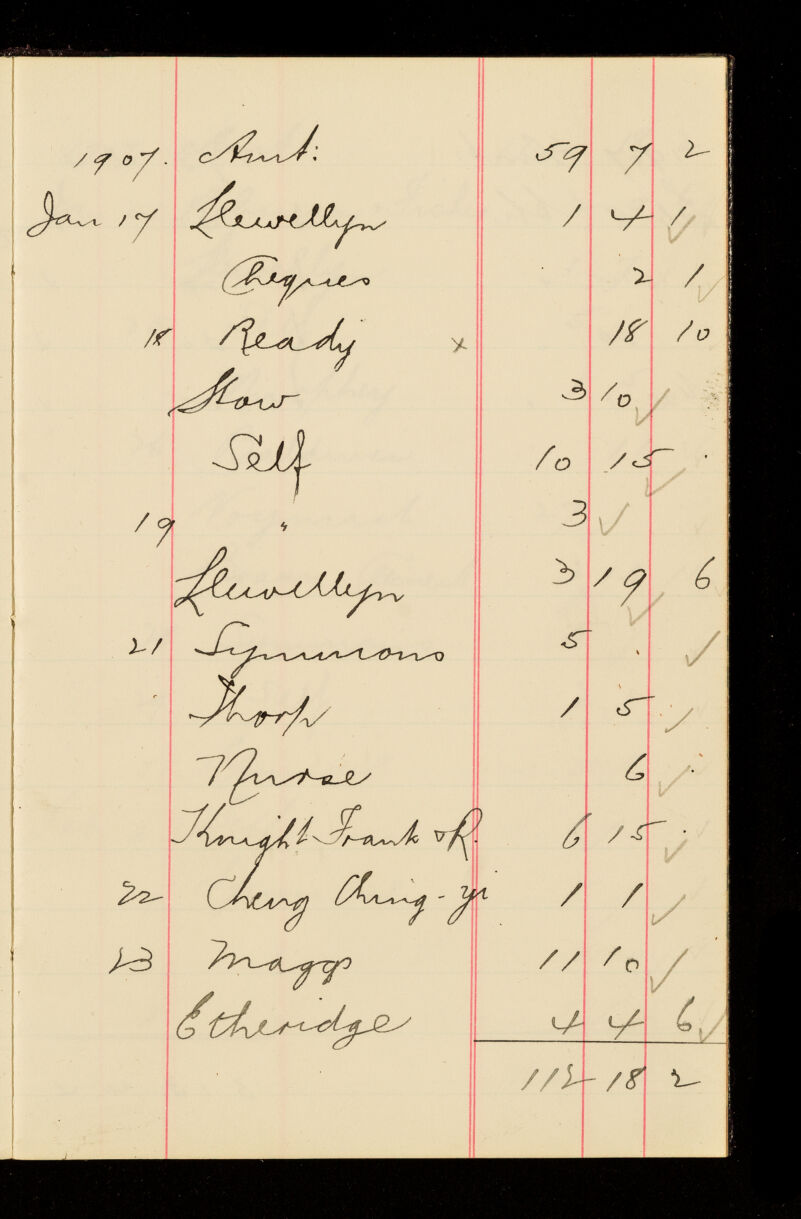 1907. Amt: 59 7 2
Jan 17 Llewellyn 1 4 1 ✓
Cheques 2 1 ✓
18 Ready x 18 10
Stow 3 10 ✓
Self 10 15 . ✓
19 " 3 ✓
Llewellyn 3 19 6 ✓
21 Symmons 5 . ✓
Thorp 1 5 ✓
Nurse 6 . ✓
Knight Frank & R. 6 15 . ✓
22 Cheng Ching-yi 1 1 ✓
23 Maggs 11 10 ✓
Etheridge 4 4 6 ✓
112 18 2